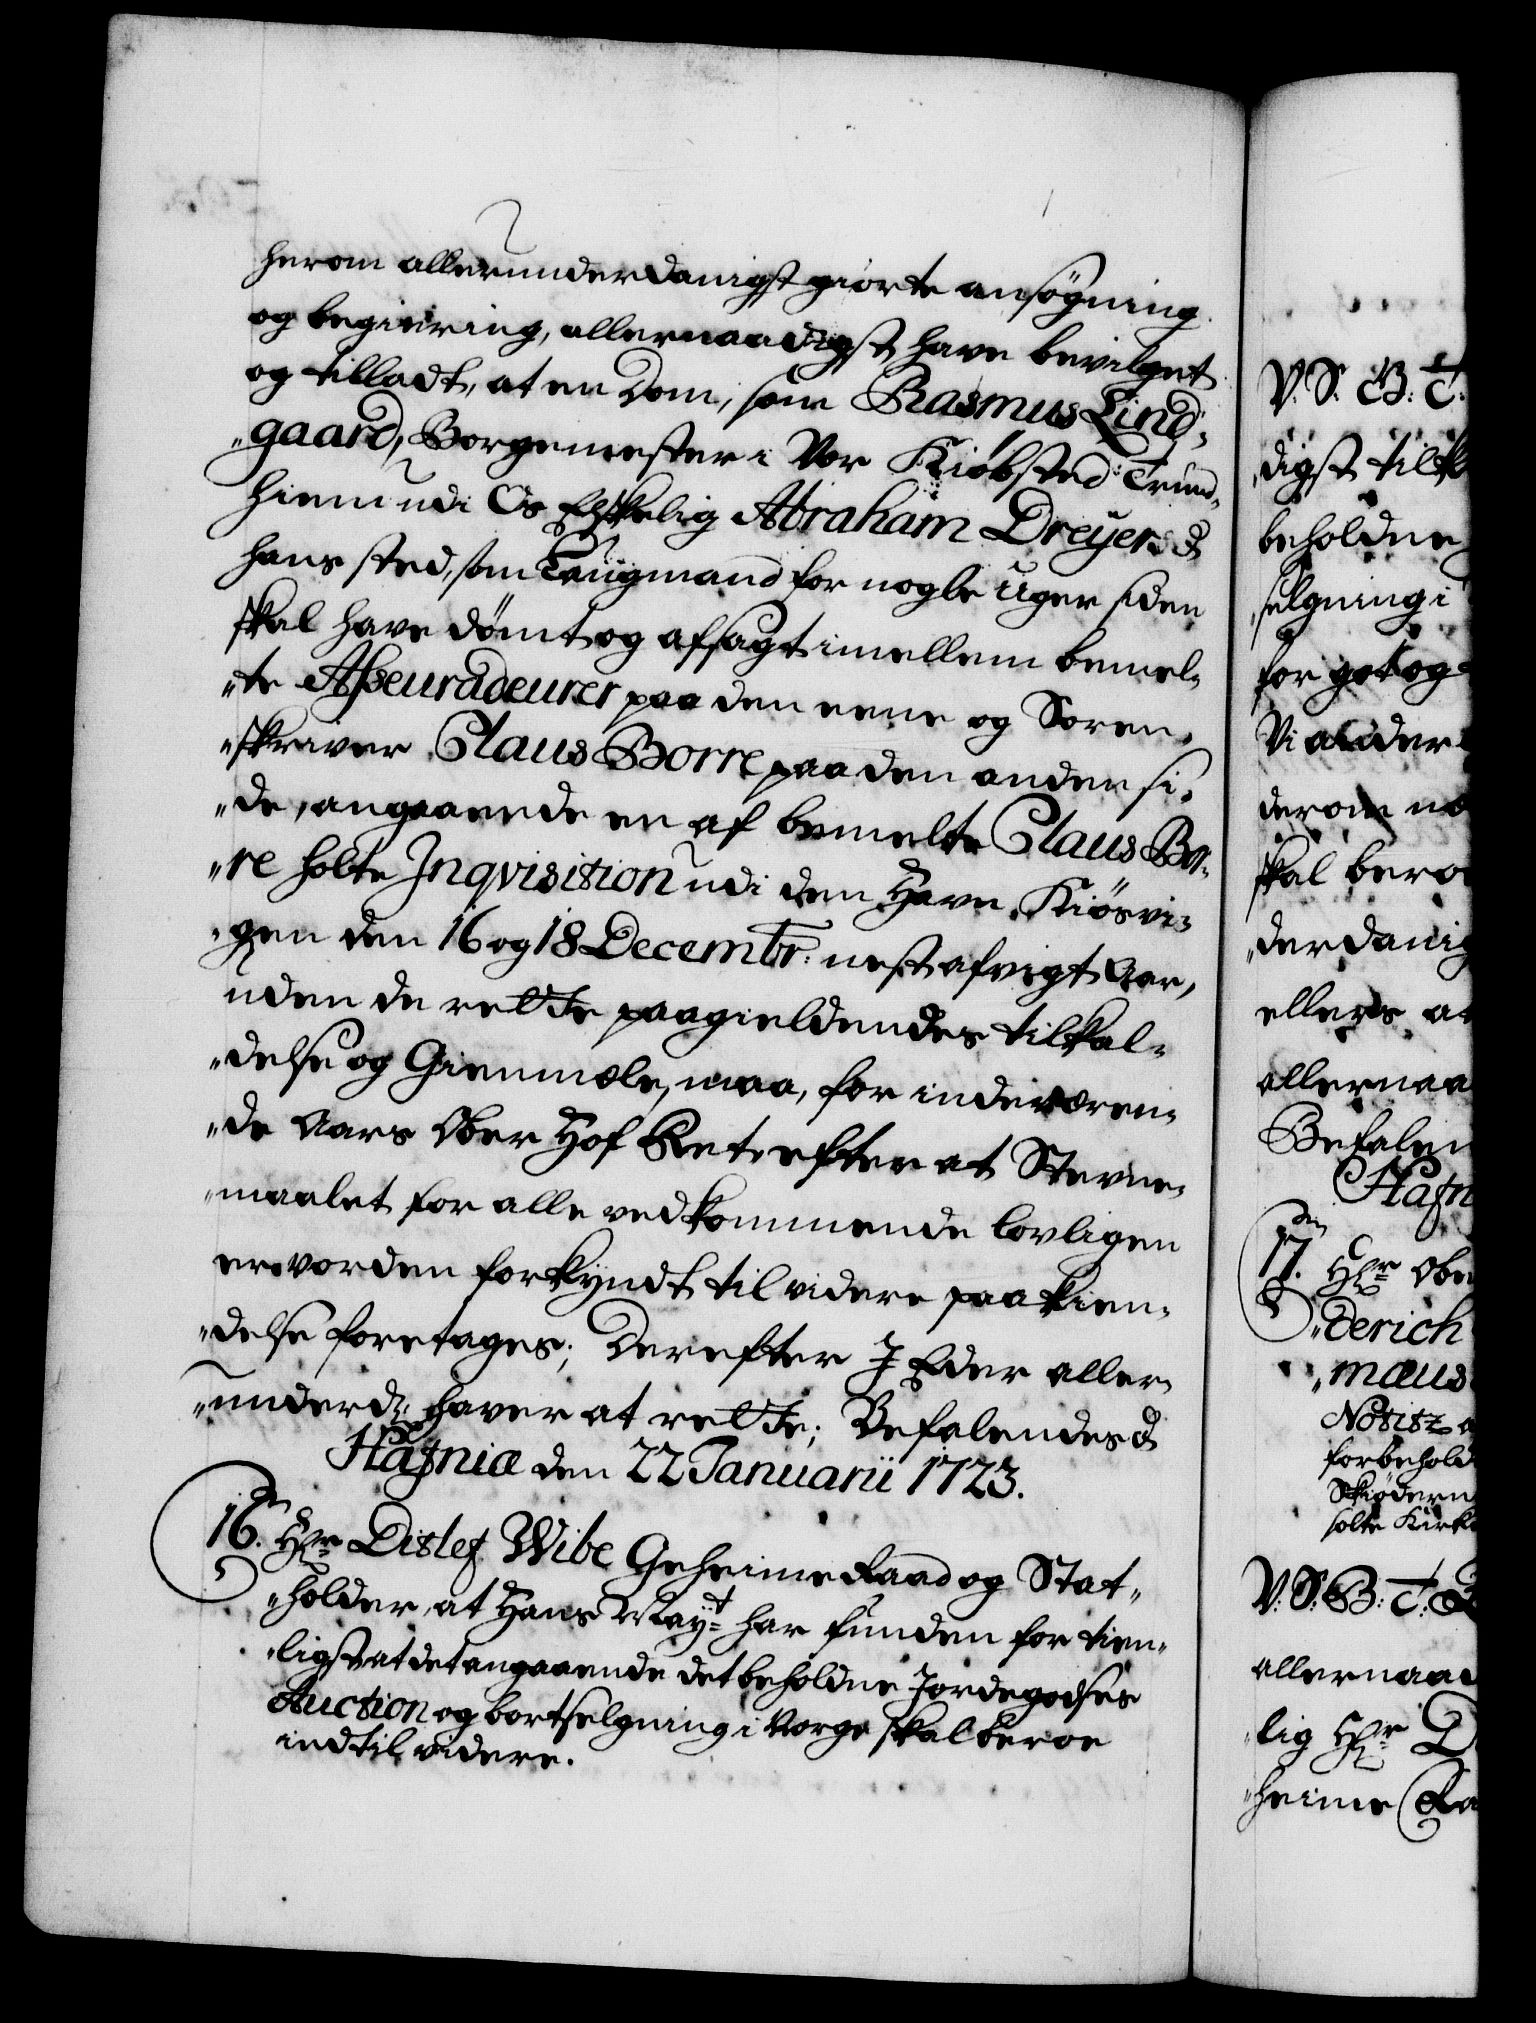 herom allerunderdanigst giorte ansøgning
og begiering, allernaadigst have bevilget
og tilladt, at en Dom, som Rasmus Lind-
„gaard, Borgemester i Vor Kiøbsted Trund-
hiem udi Os Elskelig Abraham Dreyers
hans sted, som Laugmand for nogle Uger siden
skal have dømt og afsagt imellem bemel-
„te Asseuradeurer paa den eene og Soren-
„skriver Claus Borre paa den anden si-
„de, angaaende en af bemelte Claus Bor-
„re holte Inqvisition udi den Havn Kiøsvi-
„gen den 16 og 18 Decembr: nestafvigt Aar,
uden de rette paagieldendes tilkal-
„delse og Gienmæle, maa, for indeværen-
„de Aars Ober Hof Ret, efter at Stevne-
„maalet for alle vedkommende lovligen
er vorden forkyndt til videre paakien-
„delse foretages; Derefter I Eder aller-
„underd: haver at rette; Befalendes
Hafniæ den 22 Januarii 1723.
16. Hr Ditlef Wibe Geheime Raad og Stat-
„holder, at Hans Mayt: har funden for tien-
„ligst at det angaaende det beholdne Jordegodses
Auction og bortselgning i Norge skal beroe
indtil videre.
V. S. G: T:
„digst tilk
beholdne
„selgning i
for got og
Vi a
derom
skal bero
„derdanig
ellers at
allernaa
Befalen
Hafn
17. Hr Obe
„derich
„mæus
Notitz
forbehold
Skiødern
holte Kirk
V. S. G: T:
allernaa
„lig Hr D
„heime Ra